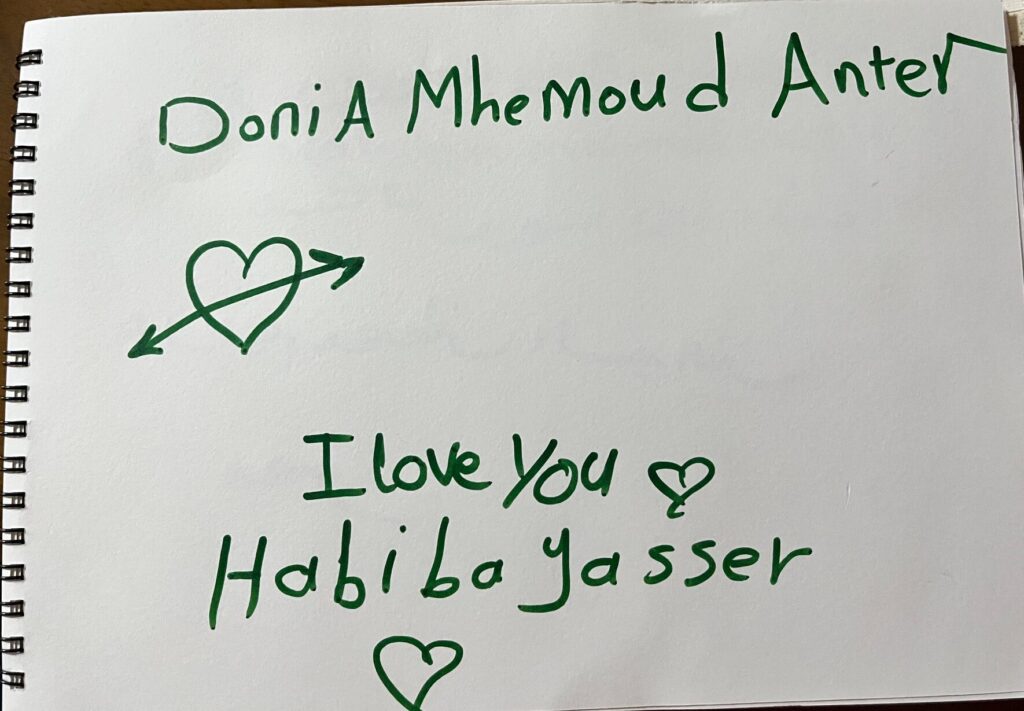 DoniA Mhemoud Anter
I love you
Habiba yasser